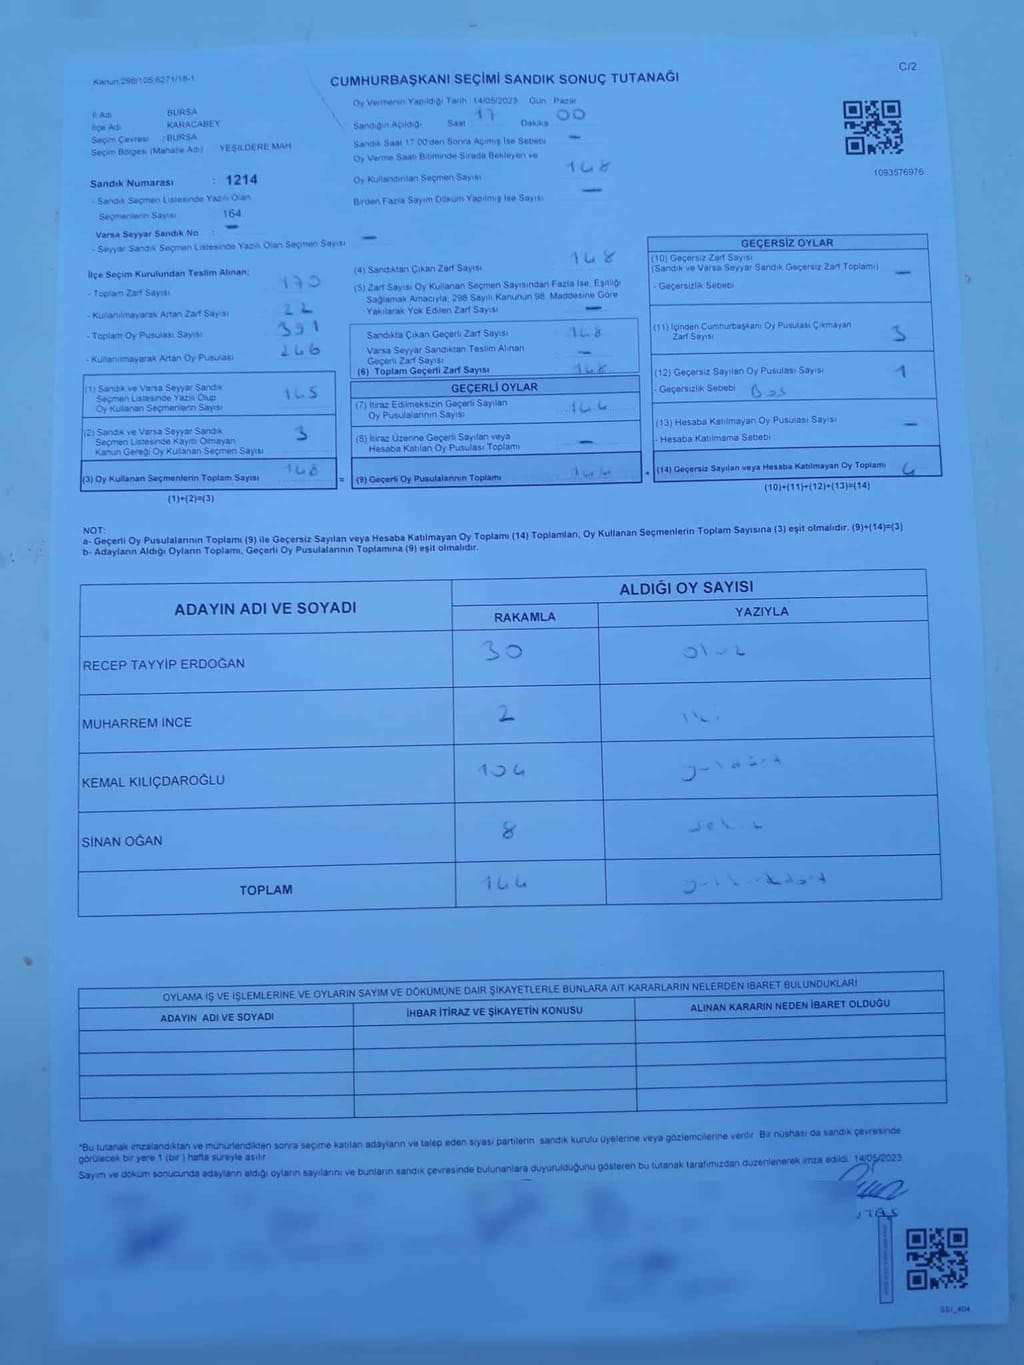 Kanun:298/105,6271/18-1
CUMHURBAŞKANI SEÇİMİ SANDIK SONUÇ TUTANAĞI
C/2
İl Adı : BURSA
İlçe Adı : KARACABEY
Seçim Çevresi : BURSA
Seçim Bölgesi (Mahalle Adı) YEŞİLDERE MAH
Sandık Numarası : 1214
- Sandık Seçmen Listesinde Yazılı Olan
Seçmenlerin Sayısı 164
Varsa Seyyar Sandık No : -
- Seyyar Sandık Seçmen Listesinde Yazılı Olan Seçmen Sayısı -
Oy Vermenin Yapıldığı Tarih 14/05/2023 Gün : Pazar
Sandığın Açıldığı Saat 17 Dakika 00
Sandık Saat 17:00'den Sonra Açımış İse Sebebi -
Oy Verme Saati Bitiminde Sırada Bekleyen ve
Oy Kullandırılan Seçmen Sayısı 148
Birden Fazla Sayım Döküm Yapılmış İse Sayısı -
1093576976
İlçe Seçim Kurulundan Teslim Alınan;
- Toplam Zarf Sayısı 170
- Kullanılmayarak Artan Zarf Sayısı 22
- Toplam Oy Pusulası Sayısı 391
- Kullanılmayarak Artan Oy Pusulası 246
(1) Sandık ve Varsa Seyyar Sandık
Seçmen Listesinde Yazılı Olup
Oy Kullanan Seçmenlerin Sayısı 145
(2) Sandık ve Varsa Seyyar Sandık
Seçmen Listesinde Kayıtlı Olmayan
Kanun Gereği Oy Kullanan Seçmen Sayısı 3
(3) Oy Kullanan Seçmenlerin Toplam Sayısı 148
(1)+(2)=(3)
(4) Sandıktan Çıkan Zarf Sayısı 148
(5) Zarf Sayısı Oy Kullanan Seçmen Sayısından Fazla İse, Eşitliği
Sağlamak Amacıyla, 298 Sayılı Kanunun 98. Maddesine Göre
Yakılarak Yok Edilen Zarf Sayısı -
Sandıkta Çıkan Geçerli Zarf Sayısı 148
Varsa Seyyar Sandıktan Teslim Alınan
Geçerli Zarf Sayısı -
(6) Toplam Geçerli Zarf Sayısı 148
GEÇERLİ OYLAR
(7) İtiraz Edilmeksizin Geçerli Sayılan
Oy Pusulalarının Sayısı 144
(8) İtiraz Üzerine Geçerli Sayılan veya
Hesaba Katılan Oy Pusulası Toplamı -
= (9) Geçerli Oy Pusulalarının Toplamı 144 +
GEÇERSİZ OYLAR
(10) Geçersiz Zarf Sayısı
(Sandık ve Varsa Seyyar Sandık Geçersiz Zarf Toplamı) -
- Geçersizlik Sebebi
(11) İçinden Cumhurbaşkanı Oy Pusulası Çıkmayan
Zarf Sayısı 3
(12) Geçersiz Sayılan Oy Pusulası Sayısı 1
- Geçersizlik Sebebi Boş
(13) Hesaba Katılmayan Oy Pusulası Sayısı -
- Hesaba Katılmama Sebebi
(14) Geçersiz Sayılan veya Hesaba Katılmayan Oy Toplamı 4
(10)+(11)+(12)+(13)=(14)
NOT:
a- Geçerli Oy Pusulalarının Toplamı (9) ile Geçersiz Sayılan veya Hesaba Katılmayan Oy Toplamı (14) Toplamları, Oy Kullanan Seçmenlerin Toplam Sayısına (3) eşit olmalıdır. (9)+(14)=(3)
b- Adayların Aldığı Oyların Toplamı, Geçerli Oy Pusulalarının Toplamına (9) eşit olmalıdır.
ADAYIN ADI VE SOYADI
ALDIĞI OY SAYISI
RAKAMLA YAZIYLA
RECEP TAYYİP ERDOĞAN 30 otuz
MUHARREM İNCE 2 iki
KEMAL KILIÇDAROĞLU 104 yüzdört
SİNAN OĞAN 8 sekiz
TOPLAM 144 yüzkırkdört
OYLAMA İŞ VE İŞLEMLERİNE VE OYLARIN SAYIM VE DÖKÜMÜNE DAİR ŞİKAYETLERLE BUNLARA AİT KARARLARIN NELERDEN İBARET BULUNDUKLARI
ADAYIN ADI VE SOYADI İHBAR İTİRAZ VE ŞİKAYETİN KONUSU ALINAN KARARIN NEDEN İBARET OLDUĞU
*Bu tutanak imzalandıktan ve mühürlendikten sonra seçime katılan adayların ve talep eden siyasi partilerin sandık kurulu üyelerine veya gözlemcilerine verilir. Bir nüshası da sandık çevresinde
görülecek bir yere 1 (bir ) hafta süreyle asılır
Sayım ve döküm sonucunda adayların aldığı oyların sayılarını ve bunların sandık çevresinde bulunanlara duyurulduğunu gösteren bu tutanak tarafımızdan düzenlenerek imza edildi. 14/05/2023
SSI_404